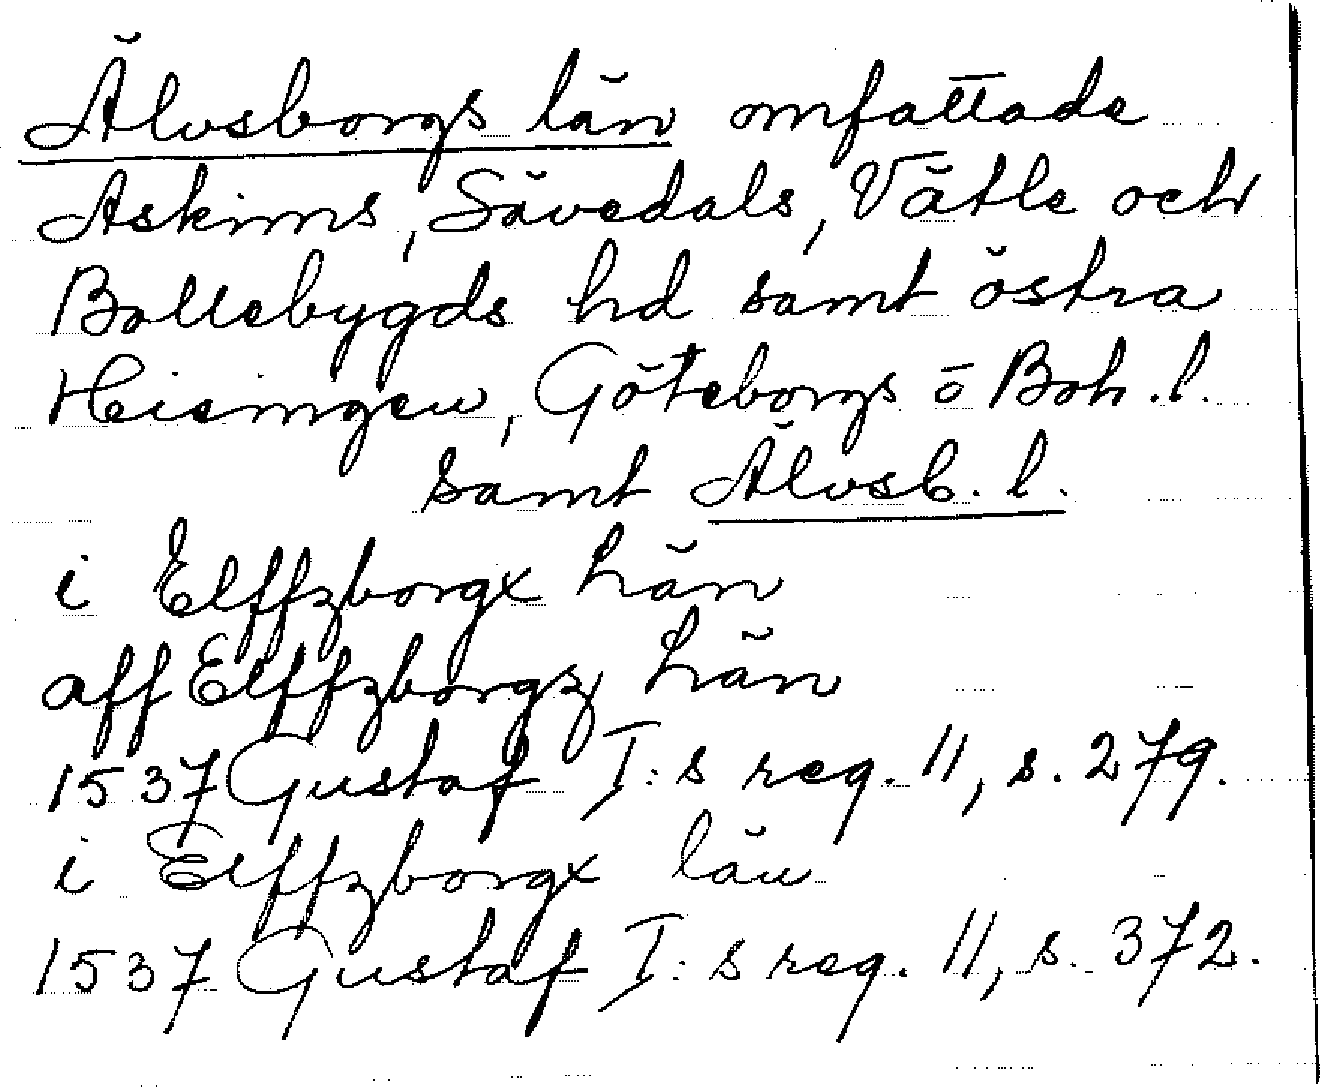 Älvsborgs län omfattade
Askims, Sävedals, Vätle och
Bollebygds hd samt östra
Hisingen, Göteborgs o Boh. l.
samt Älvsb. l.
i Elffzborgx län
aff Elffzborgz län
1537 Gustaf I:s reg. 11, s. 279.
i Elffzborgx län
1537 Gustaf I:s reg. 11, s. 372.